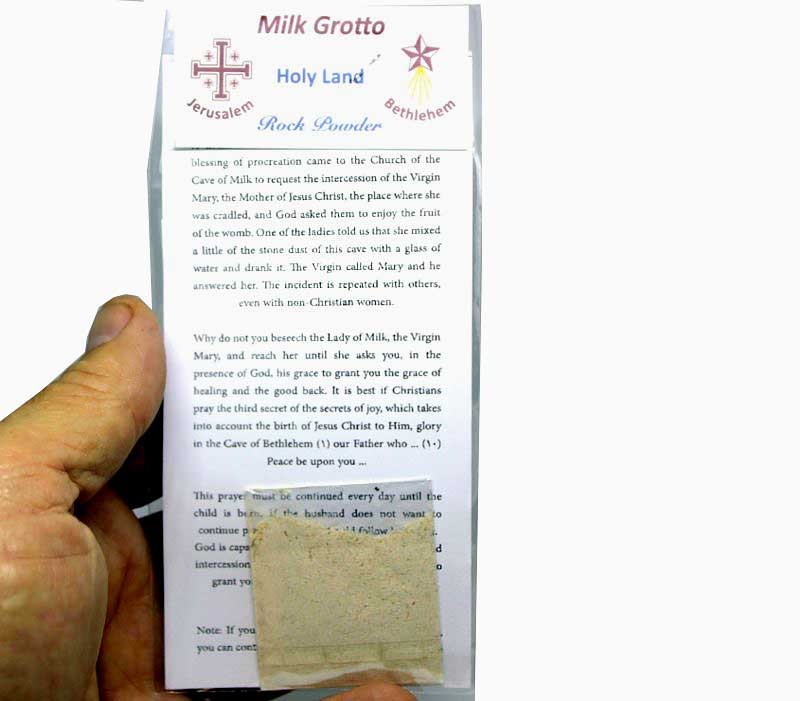 Milk Grotto
Holy Land
Jerusalem
Bethlehem
Rock Powder
blessing of procreation came to the Church of the
Cave of Milk to request the intercession of the Virgin
Mary, the Mother of Jesus Christ, the place where she
was cradled, and God asked them to enjoy the fruit
of the womb. One of the ladies told us that she mixed
a little of the stone dust of this cave with a glass of
water and drank it. The Virgin called Mary and he
answered her. The incident is repeated with others,
even with non-Christian women.
Why do not you beseech the Lady of Milk, the Virgin
Mary, and reach her until she asks you, in the
presence of God, his grace to grant you the grace of
healing and the good back. It is best if Christians
pray the third secret of the secrets of joy, which takes
into account the birth of Jesus Christ to Him, glory
in the Cave of Bethlehem (١) our Father who ... (١٠)
Peace be upon you ...
This prayer must be continued every day until the
child is born, if the husband does not want to
continue follow
God is
intercession
grant
Note: If you
you can